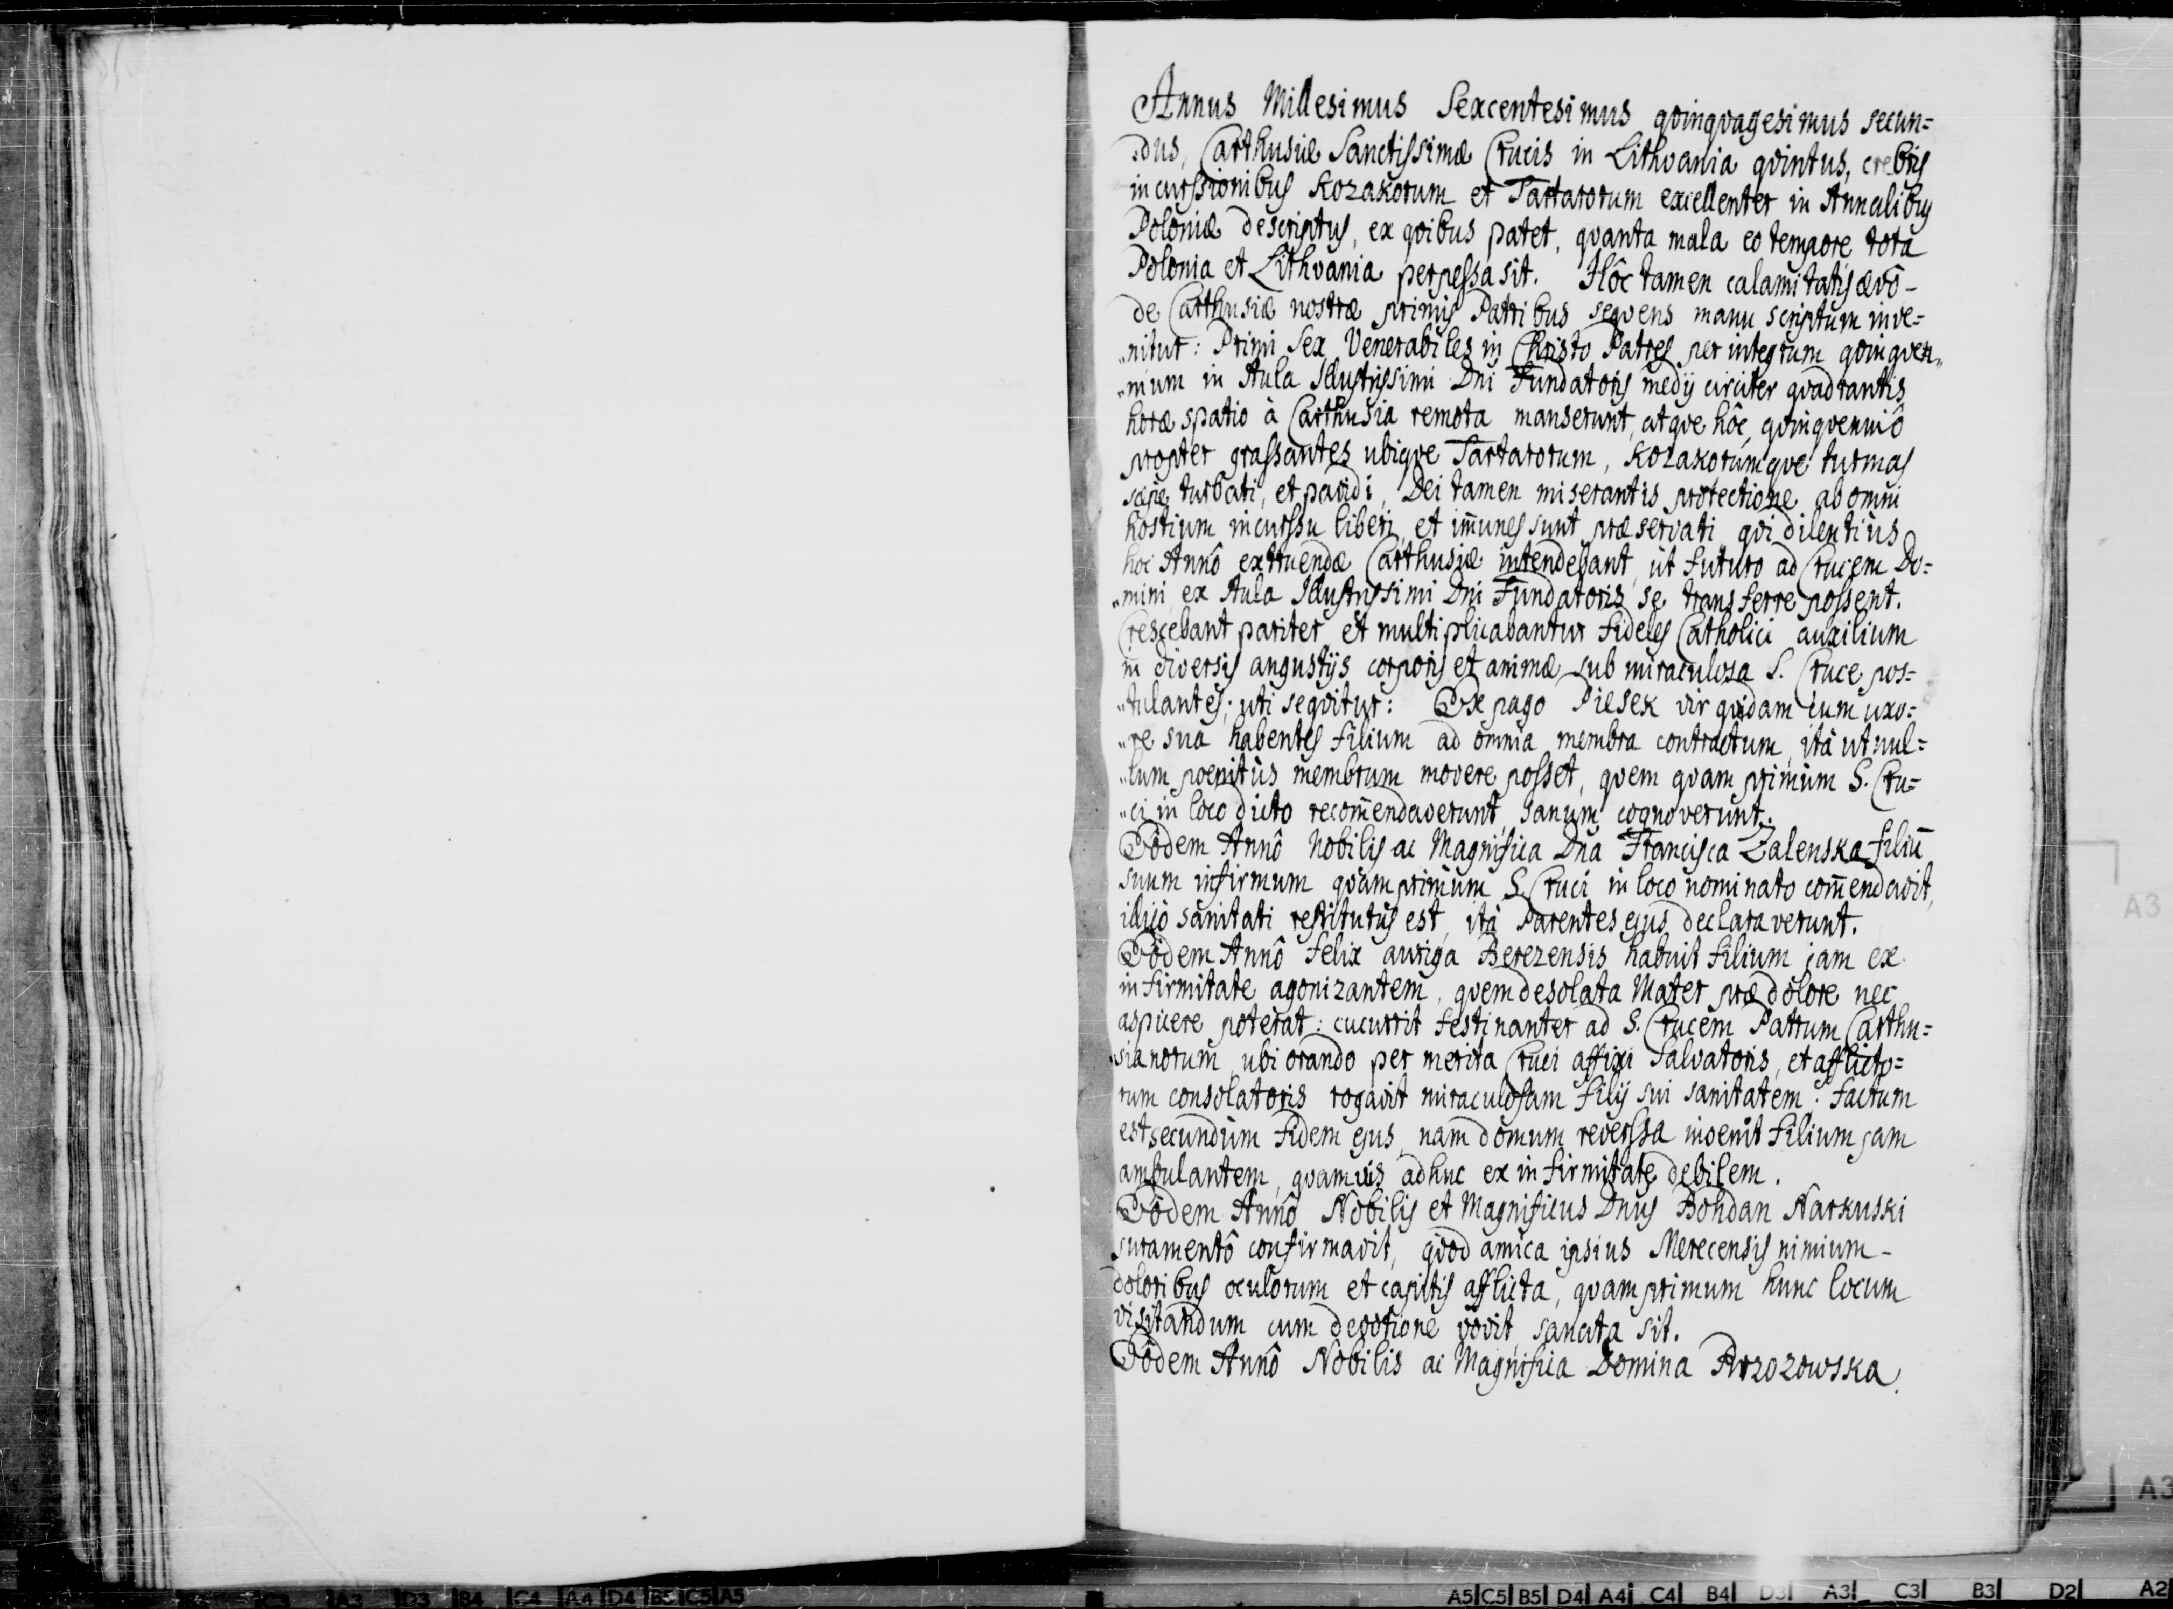 Annus Millesimus Sexcentesimus qvinqvagesimus secun=
„dus, Carthusiæ Sanctissimæ Crucis in Lithvania qvintus, crebris
incurssionibus Kozakorum et Tartarorum excellenter in Annalibus
Poloniæ descriptus, ex qvibus patet, qvanta mala eo tempore tota
Polonia et Lithvania perpessa sit. Hôc tamen calamitatis ævô -
de Carthusiæ nostræ primis Patribus seqvens manu scriptum inve=
„nitur: Primi sex Venerabiles in Christo Patres per integrum qvinqven„
„nium in Aula Illustrissimi Dni Fundatoris medij circiter qvadrantis
horæ spatio à Carthusia remota manserunt, atqve hôc qvinqvenniô
propter grassantes ubiqve Tartarorum, Kozakorumqve turmas
sæpe turbati, et pavidi, Dei tamen miserantis protectione ab omni
hostium incurssu liberi, et im̃unes sunt præservati qvi dilentius
hoc Annô extruendæ Carthusiæ intendebant, ut futuro ad Crucem Do=
„mini ex Aula Illustrissimi Dni Fundatoris se transferre possent.
Crescebant pariter et multiplicabantur fideles Catholici auxilium
in diversis angustijs corporis et animæ sub miraculosa S. Cruce pos=
„tulantes; uti seqvitur: Ex pago Piesek vir qvidam cum uxo=
„re sua habentes filium ad omnia membra contractum, ità ut nul=
„lum poenitùs membrum movere posset, qvem qvam primùm S. Cru=
„ci in loco dicto recom̃endaverunt, sanum cognoverunt.
Eôdem Annô Nobilis ac Magnifica Dna Francisca Zalenska filiu̅
suum infirmum qvamprimùm S. Cruci in loco nominato com̃endavit,
illicò sanitati restitutus est, ità Parentes ejus declaraverunt.
Eôdem Annô Felix auriga Berezensis habuit filium jam ex
infirmitate agonizantem, qvem desolata Mater præ dolore nec
aspicere poterat: cucurrit festinanter ad S. Crucem Patrum Carthu=
„sianorum, ubi orando per merita Cruci affixi Salvatoris, et afflicto=
rum consolatoris rogavit miraculosam filij sui sanitatem. Factum
est secundùm fidem ejus, nam domum reverssa invenit filium jam
ambulantem, qvamvis adhuc ex infirmitate debilem.
Eôdem Annô Nobilis et Magnificus Dnus Bohdan Narkuski
juramentô confirmavit, qvod amica ipsius Merecensis nimium -
doloribus oculorum et capitis afflicta, qvamprimum hunc locum
visitandum cum devotione vovit, sanata sit.
Eôdem Annô Nobilis ac Magnifica Domina Brzozowska
A3
A3
C3 A3 D3 B4 C4 A4 D4 B5 C5 A5
A5 C5 B5 D4 A4 C4 B4 D3 A3 C3 B3 D2 A2